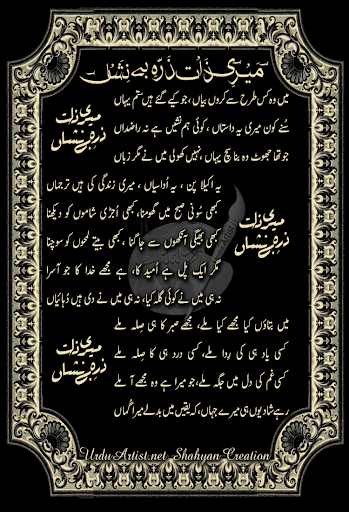 میری ذات ذرہ بے نشاں
میں وہ کس طرح سے کروں بیاں، جو کیے گئے ہیں ستم یہاں
سنے کون میری یہ داستاں، کوئی ہم نشیں ہے نہ رازداں
جو تھا جھوٹ وہ بنا سچ یہاں، نہیں کھولی میں نے مگر زباں
میری ذات
ذرہ بے نشاں
یہ اکیلا پن، یہ اداسیاں، میری زندگی کی ہیں ترجماں
کبھی سونی صبح میں گھومنا، کبھی اجڑی شاموں کو دیکھنا
کبھی بھیگی آنکھوں سے جاگنا، کبھی بیتے لمحوں کو سوچنا
مگر ایک پل ہے امید کا، ہے مجھے خدا کا جو آسرا
نہ ہی میں نے کوئی گلہ کیا، نہ ہی میں نے دی ہیں دہائیاں
میری ذات
ذرہ بے نشاں
میں بتاؤں کیا مجھے کیا ملے، مجھے صبر کا ہی صلہ ملے
کسی یاد ہی کی ردا ملے، کسی درد ہی کا صلہ ملے
کسی غم کی دل میں جگہ ملے، جو میرا ہے وہ مجھے آ ملے
رہے شاد یوں ہی میرے جہاں، کہ یقیں میں بدلے میرا گماں
میری ذات
ذرہ بے نشاں
Urdu Artist.net Shahyan Creation